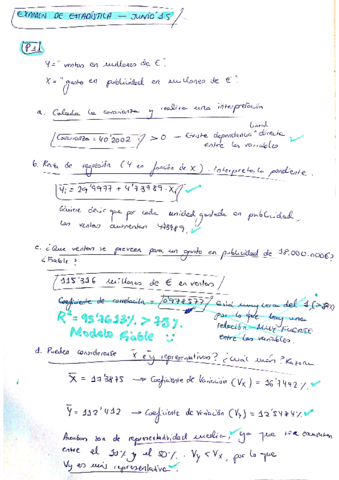 EXAMEN DE ESTADÍSTICA — JUNIO'15
P1
Y = "ventas en millones de €".
X = "gasto en publicidad en millones de €".
a. Calcula la covarianza y realiza una interpretación
Covarianza = 40'2002 > 0 → Existe dependencia lineal directa
entre las variables
b. Recta de regresión (Y en función de X). Interpreta la pendiente.
Quiere decir que por cada unidad gastada en publicidad,
las ventas aumentan
c. ¿Que ventas se preveen para un gasto en publicidad de 18.000.000€?
¿Fiable?
115'316 millones de € en ventas
Coeficiente de correlación = está muy cerca del 1
por lo que hay una
relación MUY FUERTE
entre las variables.
R² = 95'7613% > 75%
Modelo Fiable
d. Pueden considerarse x̄ e ȳ representativos? ¿Cuál más?
X̄ = 18'3875 → Coeficiente de Variación (Vx) = 16'7442%
Ȳ = 112'412 → Coeficiente de Variación (Vy) = 12'5474%
Ambas son de representatividad media, ya que se encuentran
entre el 10% y el 50%. Vy < Vx, por lo que
Vy es más representativa